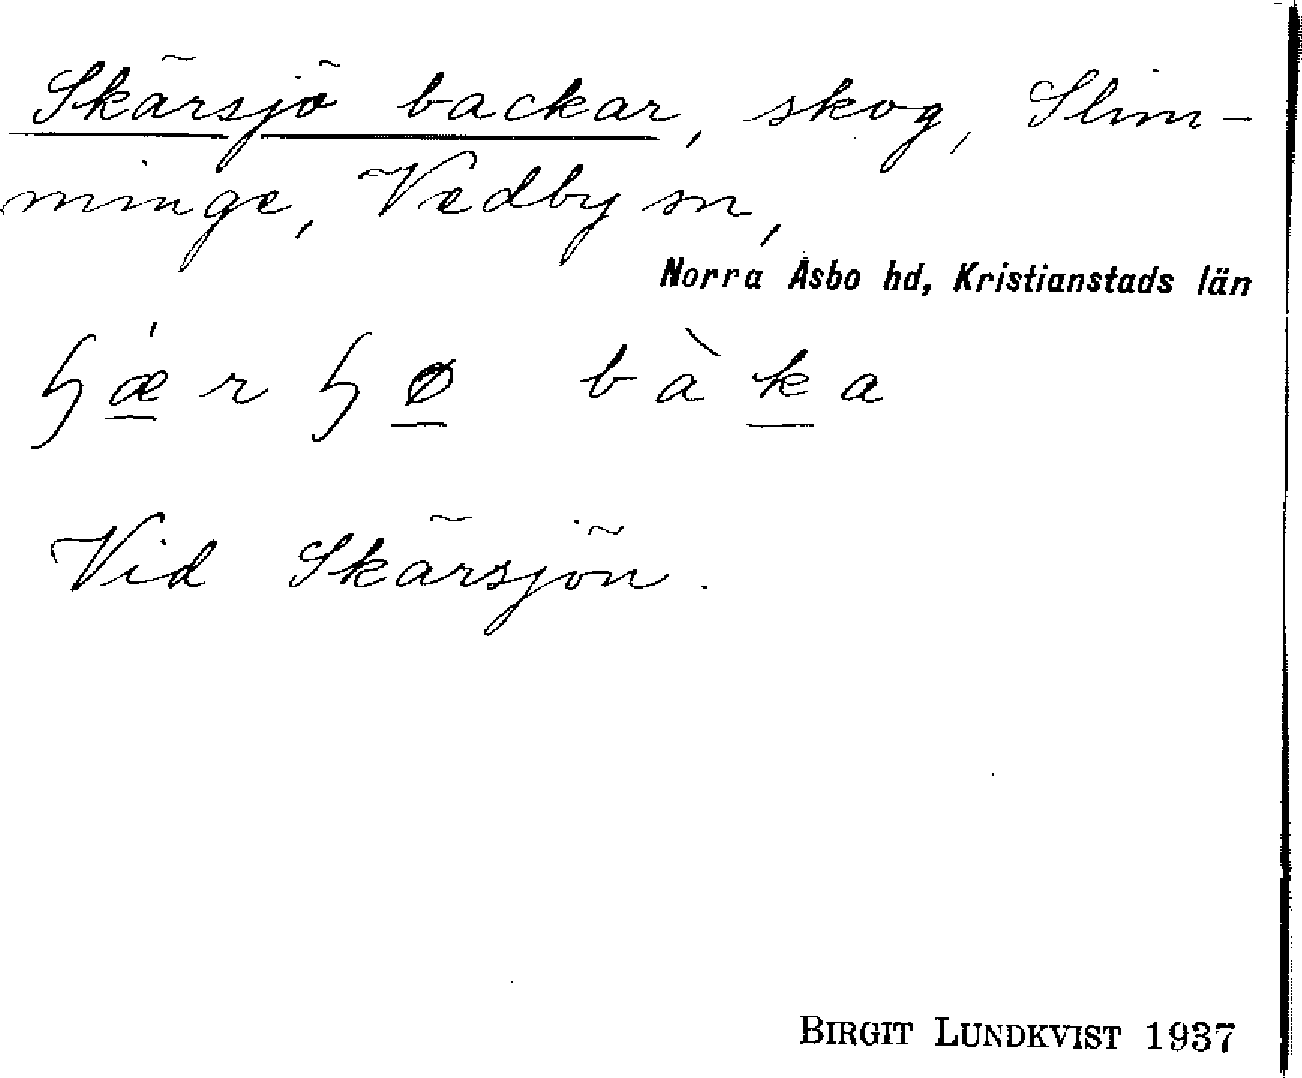 Skärsjö backar, skog, Slim-
minge, Vedby sn,
Norra Åsbo hd, Kristianstads län
ɧǽrɧø bàka
Vid Skärsjön.
BIRGIT LUNDKVIST 1937